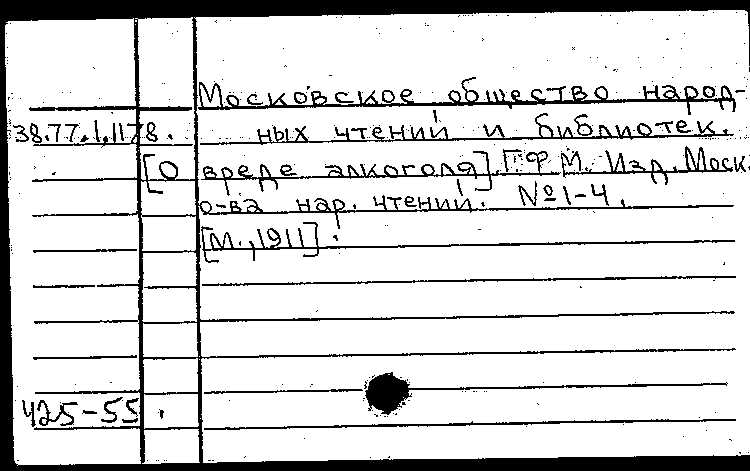 Московское общество народ-
38.77.1.1178. ных чтений и библиотек.
[О вреде алкоголя]. М. Изд. Моск.
о-ва нар. чтений. №1-4.
[М., 1911].
425-55.